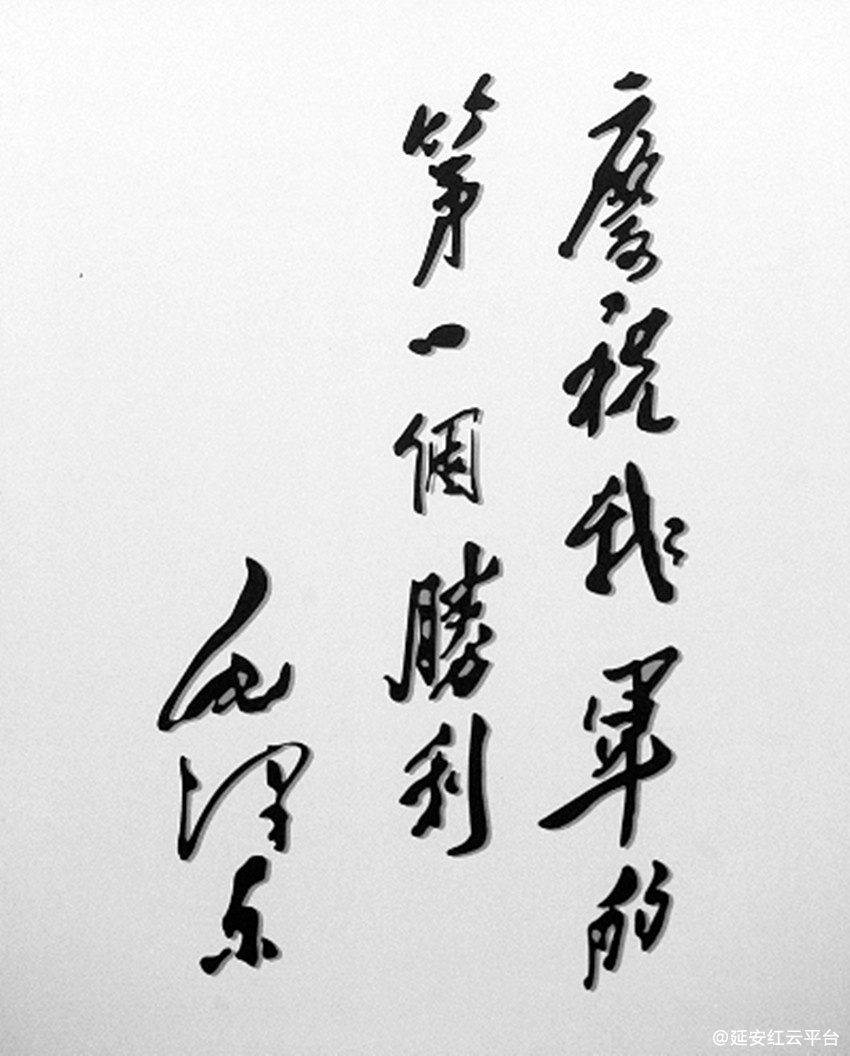 慶祝我軍的
第一個勝利
毛澤東
@延安红云平台